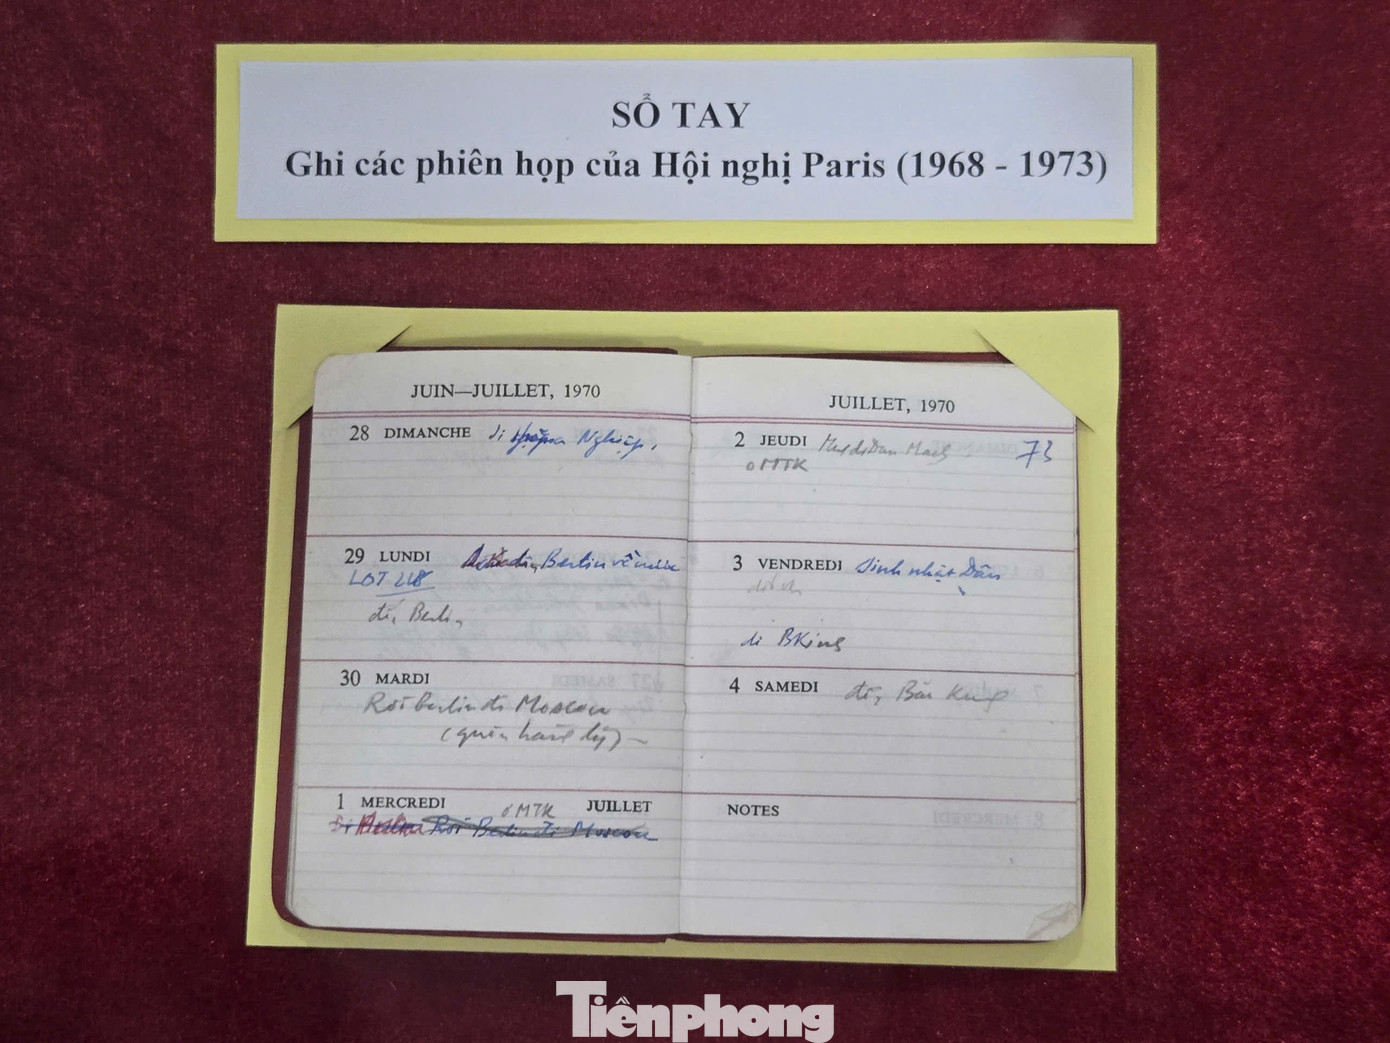 SỔ TAY
Ghi các phiên họp của Hội nghị Paris (1968 - 1973)
JUIN—JUILLET, 1970
28 DIMANCHE đi Nghiệp,
29 LUNDI Berlin về
LOT
đến Berlin
30 MARDI
Rời Berlin đi Moscou
(quên hành lý)
1 MERCREDI ở MTK JUILLET
Rời Berlin đi Moscou
JUILLET, 1970
2 JEUDI 73
ở MTK
3 VENDREDI Sinh nhật Dân
đi BKinh
4 SAMEDI đến Bắc Kinh
NOTES
Tiênphong